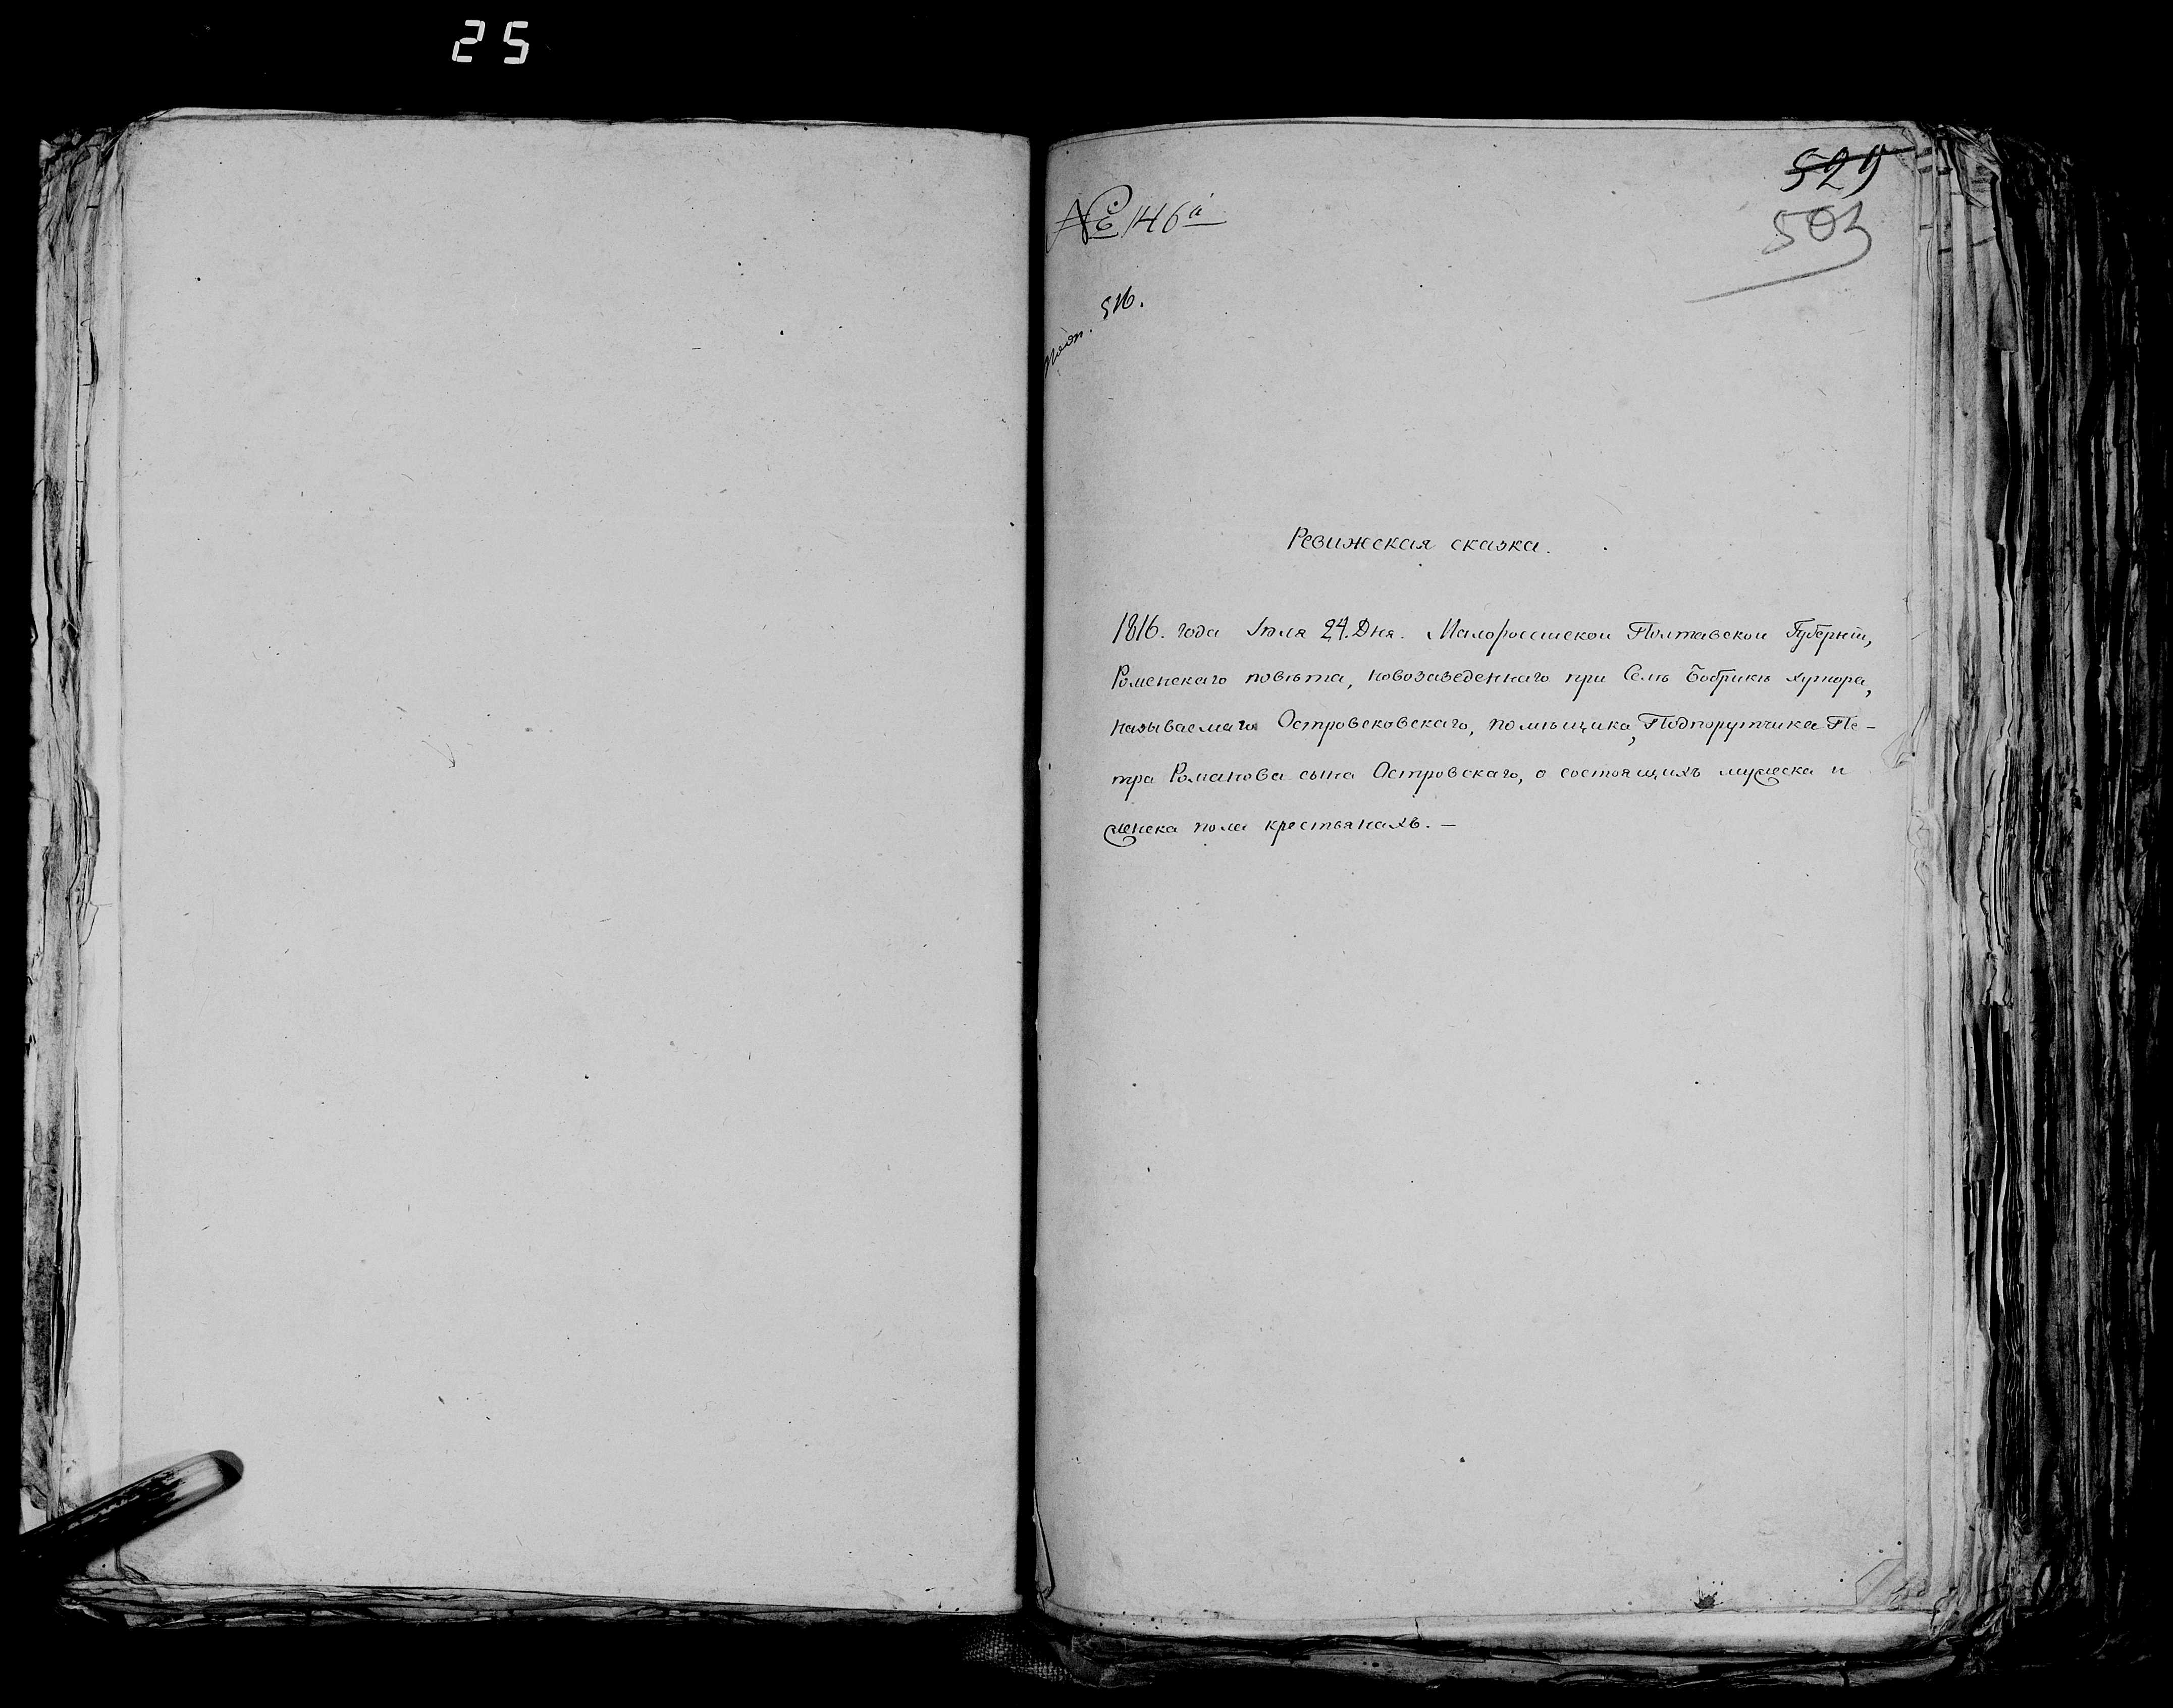 25
529
503
№ 146й
516.
Ревижская сказка.
1816. года Iюля 24. Дня. Малороссиской Полтавской Губернiи,
Роменского повѣта, новозаведеннаго при Селѣ Бобрикѣ хутора,
называемаго Островсковскаго, помѣщика, Подпорутчика Пе-
тра Романова сына Островскаго, о состоящихъ мужеска и
женска пола крестьянахъ. —